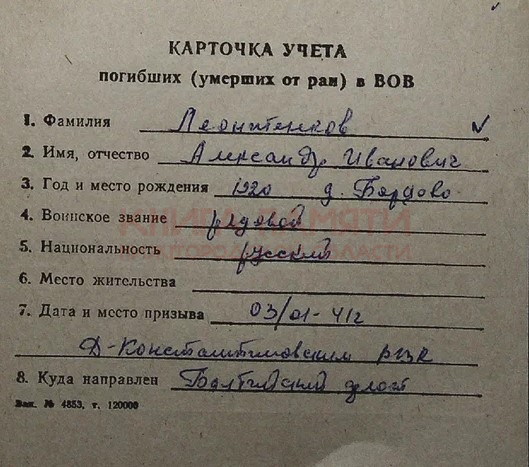 КАРТОЧКА УЧЕТА
погибших (умерших от ран) в ВОВ
1. Фамилия Леонтенков
2. Имя, отчество Александр Иванович
3. Год и место рождения 1920 д. Борцово
4. Воинское звание рядовой
КНИГА ПАМЯТИ
5. Национальность русский
6. Место жительства
7. Дата и место призыва 03/01-41г
Д-Константиновским РВК
8. Куда направлен Балтийский флот
Зак. № 4853, т. 120000